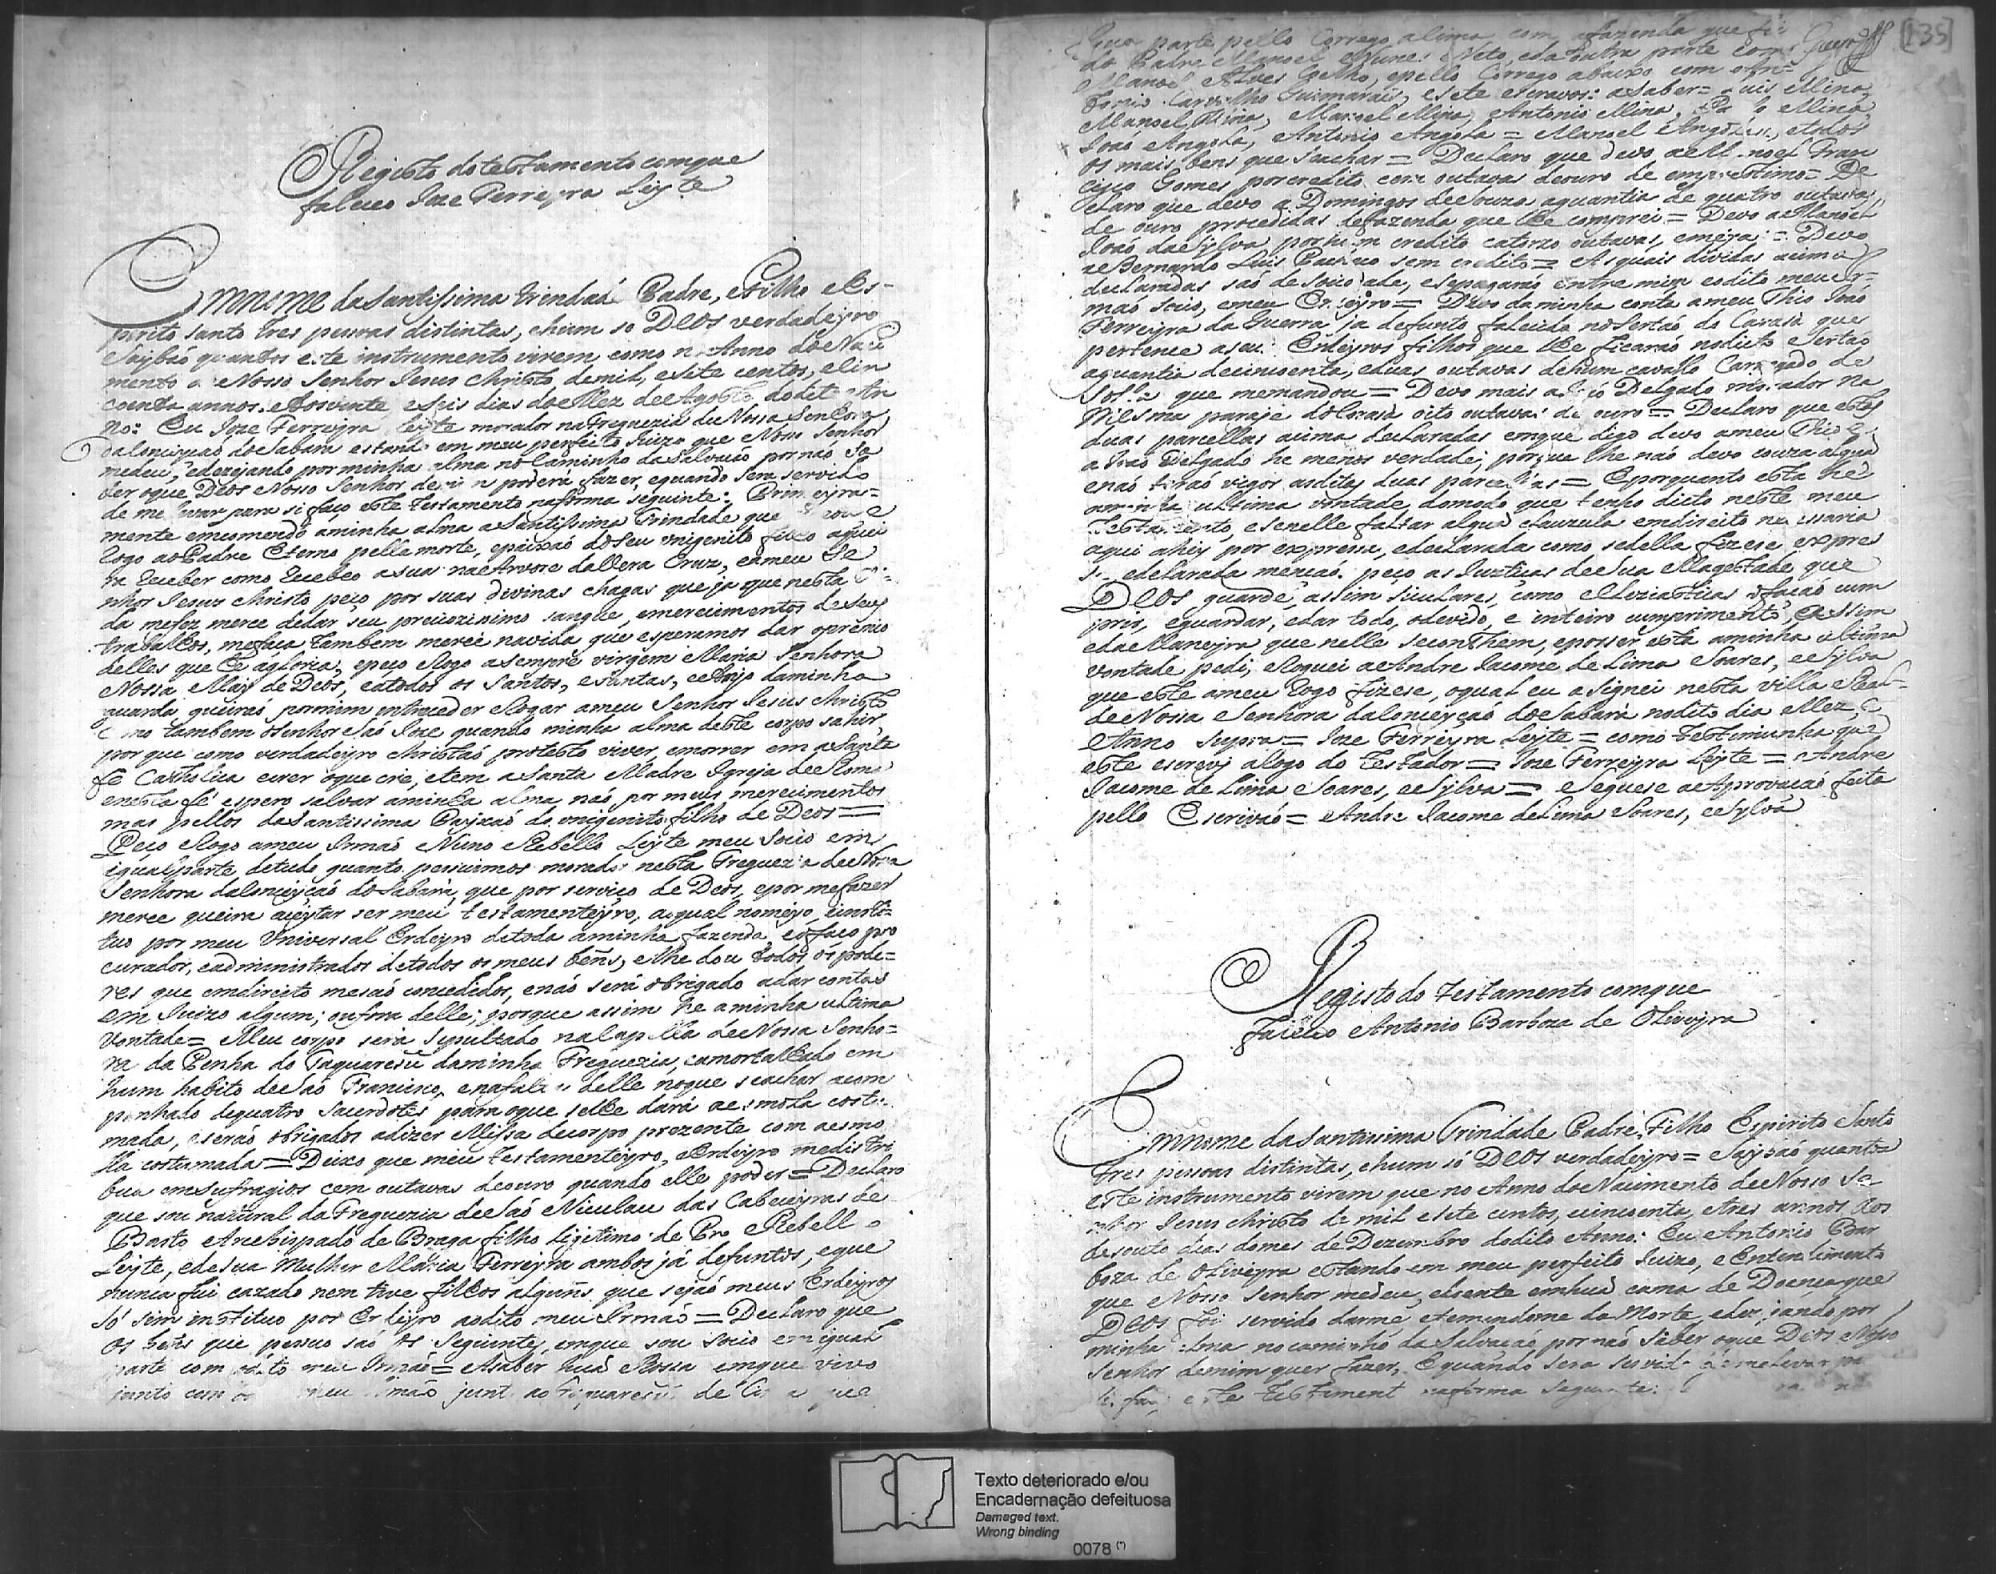 Registo do testamento comque
faleceo Joze Ferreyra Leyte
Em nome da Santissima trindade Padre, e Filho e Es-
pirito santo tres pessoas distintas, e hum so DEOS verdadeyro
Saybaõ quantos este instrumento virem como no Anno do Naci
mento de Nosso Senhor Jesus Christo de mil, e sete centos, e sin
coenta annos. Aos vinte e seis dias do Mez de Agosto do dito An
no: Eu Joze Ferreyra Leyte morador na Freguezia de Nossa Senhora
da Conceyçaõ do Sabara estando em meu perfeito Juizo que Nosso Senhor
me deu, e dezejando por minha alma no Caminho da Salvaçaõ por naõ sa
ber o que Deos Nosso Senhor de mim poderá fazer, e quando sera servido
de me levar para si faço este testamento na forma seguinte: Primeyra=
mente emcomendo a minha alma a Santissima Trindade que a criou e
Rogo ao Padre Eterno pella morte, e paixaõ do seu Unigenito filho a quei
ra receber como Recebeo a sua na Arvore da Vera Cruz, e a meu Se
nhor Jesus Christo peço por suas divinas chagas que ja que nesta vi=
da me fez merce de dar seu preciozissimo sangue, e merecimentos de seus
trabalhos, me faça tambem merce na vida que esperamos dar o premio
delles que he a gloria, e peço e Rogo a sempre virgem Maria Senhora
Nossa May de Deos, e a todos os Santos, e Santas, e ao Anjo da minha
guarda queiraõ por mim interceder e Rogar a meu Senhor Jesus Christo
como tambem o Senhor Saõ Joze quando minha alma deste corpo sahir
por que como verdadeyro christaõ protesto viver, e morrer em a Santa
fe Catholica e crer o que crê, e tem a Santa Madre Igreja de Roma
e nesta fé espero salvar a minha alma naõ por meus merecimentos
mas pellos da Santissima Payxaõ do unigenito filho de Deos =
Peço e Rogo a meu Irmaõ Nuno Rebello Leyte meu Socio em
igual parte de tudo quanto possuimos morador nesta Freguezia de Nossa
Senhora da Conceyçaõ do Sabara, que por serviço de Deos, e por me fazer
merce queira aceytar ser meu testamenteyro, ao qual nomeyo, e insti=
tuo por meu Universal Erdeyro de toda a minha fazenda, e o faço pro
curador, e administrador de todos os meus bẽns, e lhe dou todos os pode=
res que em direito me saõ concedidos, e naõ será obrigado a dar contas
em Juizo algum, ou fora delle; porque assim he a minha ultima
Vontade = Meu corpo será sepultado na Capella de Nossa Senho=
ra da Penha do Taquaresũ da minha Freguezia, e amortalhado em
hum habito de Saõ Francisco, e na falta delle no que se achar acom
panhado de quatro Sacerdotes para o que se lhe dará a esmola costu
mada, e seraõ obrigados a dizer Missa de corpo prezente com a esmo
lla costumada = Deixo que meu testamenteyro, e Erdeyro me distri
bua em Sufragios cem outavas de ouro quando elle poder = Declaro
que sou natural da Freguezia de Saõ Niculau das Cabeceyras de
Basto Arcebispado de Braga filho legitimo de Pro Rebello
Leyte, e de sua Mulher Maria Ferreyra ambos já defuntos, e que
nunca fui cazado nem tive filhos algũns que sejaõ meus Erdeyros
só sim instituo por Erdeyro ao dito meu Irmaõ = Declaro que
os bens que possuo saõ os Seguintes, em que sou Socio em igual
parte com o dito meu Irmaõ = A saber huã Rossa em que vivo
junto com o meu Irmaõ junto ao Taquaresũ de
[135]
Hua parte pello Corrego asima com a fazenda que foi
do Padre Manoel Nunes Neto, e da outra parte com
Manoel Alves Coelho, e pello Corrego abaixo com An=
tonio Carvalho Guimaraẽs, e sete escravos: a saber = Luis Mina
Manoel Mina, Manoel Mina, Antonio Mina, Mina,
Joaõ Angola, Antonio Angola = Manoel Angola, e todos
os mais bens que se achar = Declaro que devo a Manoel Fran
cisco Gomes por credito cem outavas de ouro de emprestimo = De
claro que devo a Domingos de Souza a quantia de quatro outavas
de ouro procedidas de fazenda que lhe comprei = Devo a Manoel
Joaõ da Sylva por hum credito catorze outavas, e meya = Devo
a Bernardo Luis sem credito = As quais dividas acima
declaradas saõ de sociedade, e se pagaraõ entre mim e o dito meu Ir=
maõ socio, e meu Erdeyro = Devo da minha conta a meu Thio Joaõ
Ferreyra da Guerra ja defunto falecido no Sertaõ do Carasà que
pertence a seus Erdeyros filhos que lhe ficaraõ no dito Sertaõ
a quantia de cincoenta, e duas outavas de hum cavallo Carregado de
que me mandou = Devo mais a Joaõ Delgado morador na
Mesma paraje do Carasà oito outavas de ouro = Declaro que estas
duas parcellas acima declaradas em que digo devo a meu Thio e
a Joaõ Delgado he menos verdade; porque lhe naõ devo couza algua
e naõ teraõ vigor as ditas duas parcellas = E porquanto esta he
a minha ultima vontade do modo que tenho dito neste meu
testamento, e se nelle faltar algua clauzula em direito necessaria
aqui a hey por expressa, e declarada como se della fizese expres
sa e declarada mençaõ. peço as Justiças de Sua Magestade que
DEOS guarde, assim seculares, como Ecleziasticas o façaõ cum
prir, e guardar, e dar todo, o devido, e inteiro cumprimento, assim
e da Maneyra que nelle se conthem, e por ser esta a minha ultima
vontade pedi, e Roguei a Andre Jacome de Lima Soares, e Sylva
que este a meu Rogo fizese, o qual eu asignei nesta villa Real
de Nossa Senhora da Conceyçaõ do Sabarà no dito dia Mez, e
Anno supra = Joze Ferreyra Leyte = como testemunha que
este escrevj a Rogo do Testador = Joze Ferreyra Leyte = Andre
Jacome de Lima Soares, e Sylva = e Seguese a Aprovaçaõ feita
pello Escrivaõ = Andre Jacome de Lima Soares, e Sylva
Registo do testamento comque
faleceo Antonio Barboza de Oliveyra
Em nome da Santissima Trindade Padre, Filho Espirito Santo
tres pessoas distintas, e hum só DEOS verdadeyro = Saybaõ quantos
este instrumento virem que no Anno do Nacimento de Nosso Se
nhor Jesus Christo de mil e sete centos, e cincoenta, e tres annos Aos
desouto dias do mes de Dezembro do dito Anno: Eu Antonio Bar
boza de Oliveyra estando em meu perfeito Juizo, e Entendimento
que Nosso Senhor me deu, e doente em huã cama de Doença que
DEOS foi servido darme, e temendome da Morte, e dezejando por
minha alma no caminho da Salvaçaõ por naõ Saber o que Deos Nosso
Senhor de mim quer fazer, e quando sera servido de me levar pa
si faço este testamento na forma Seguinte:
Texto deteriorado e/ou
Encadernação defeituosa
Damaged text.
Wrong binding
0078 (*)